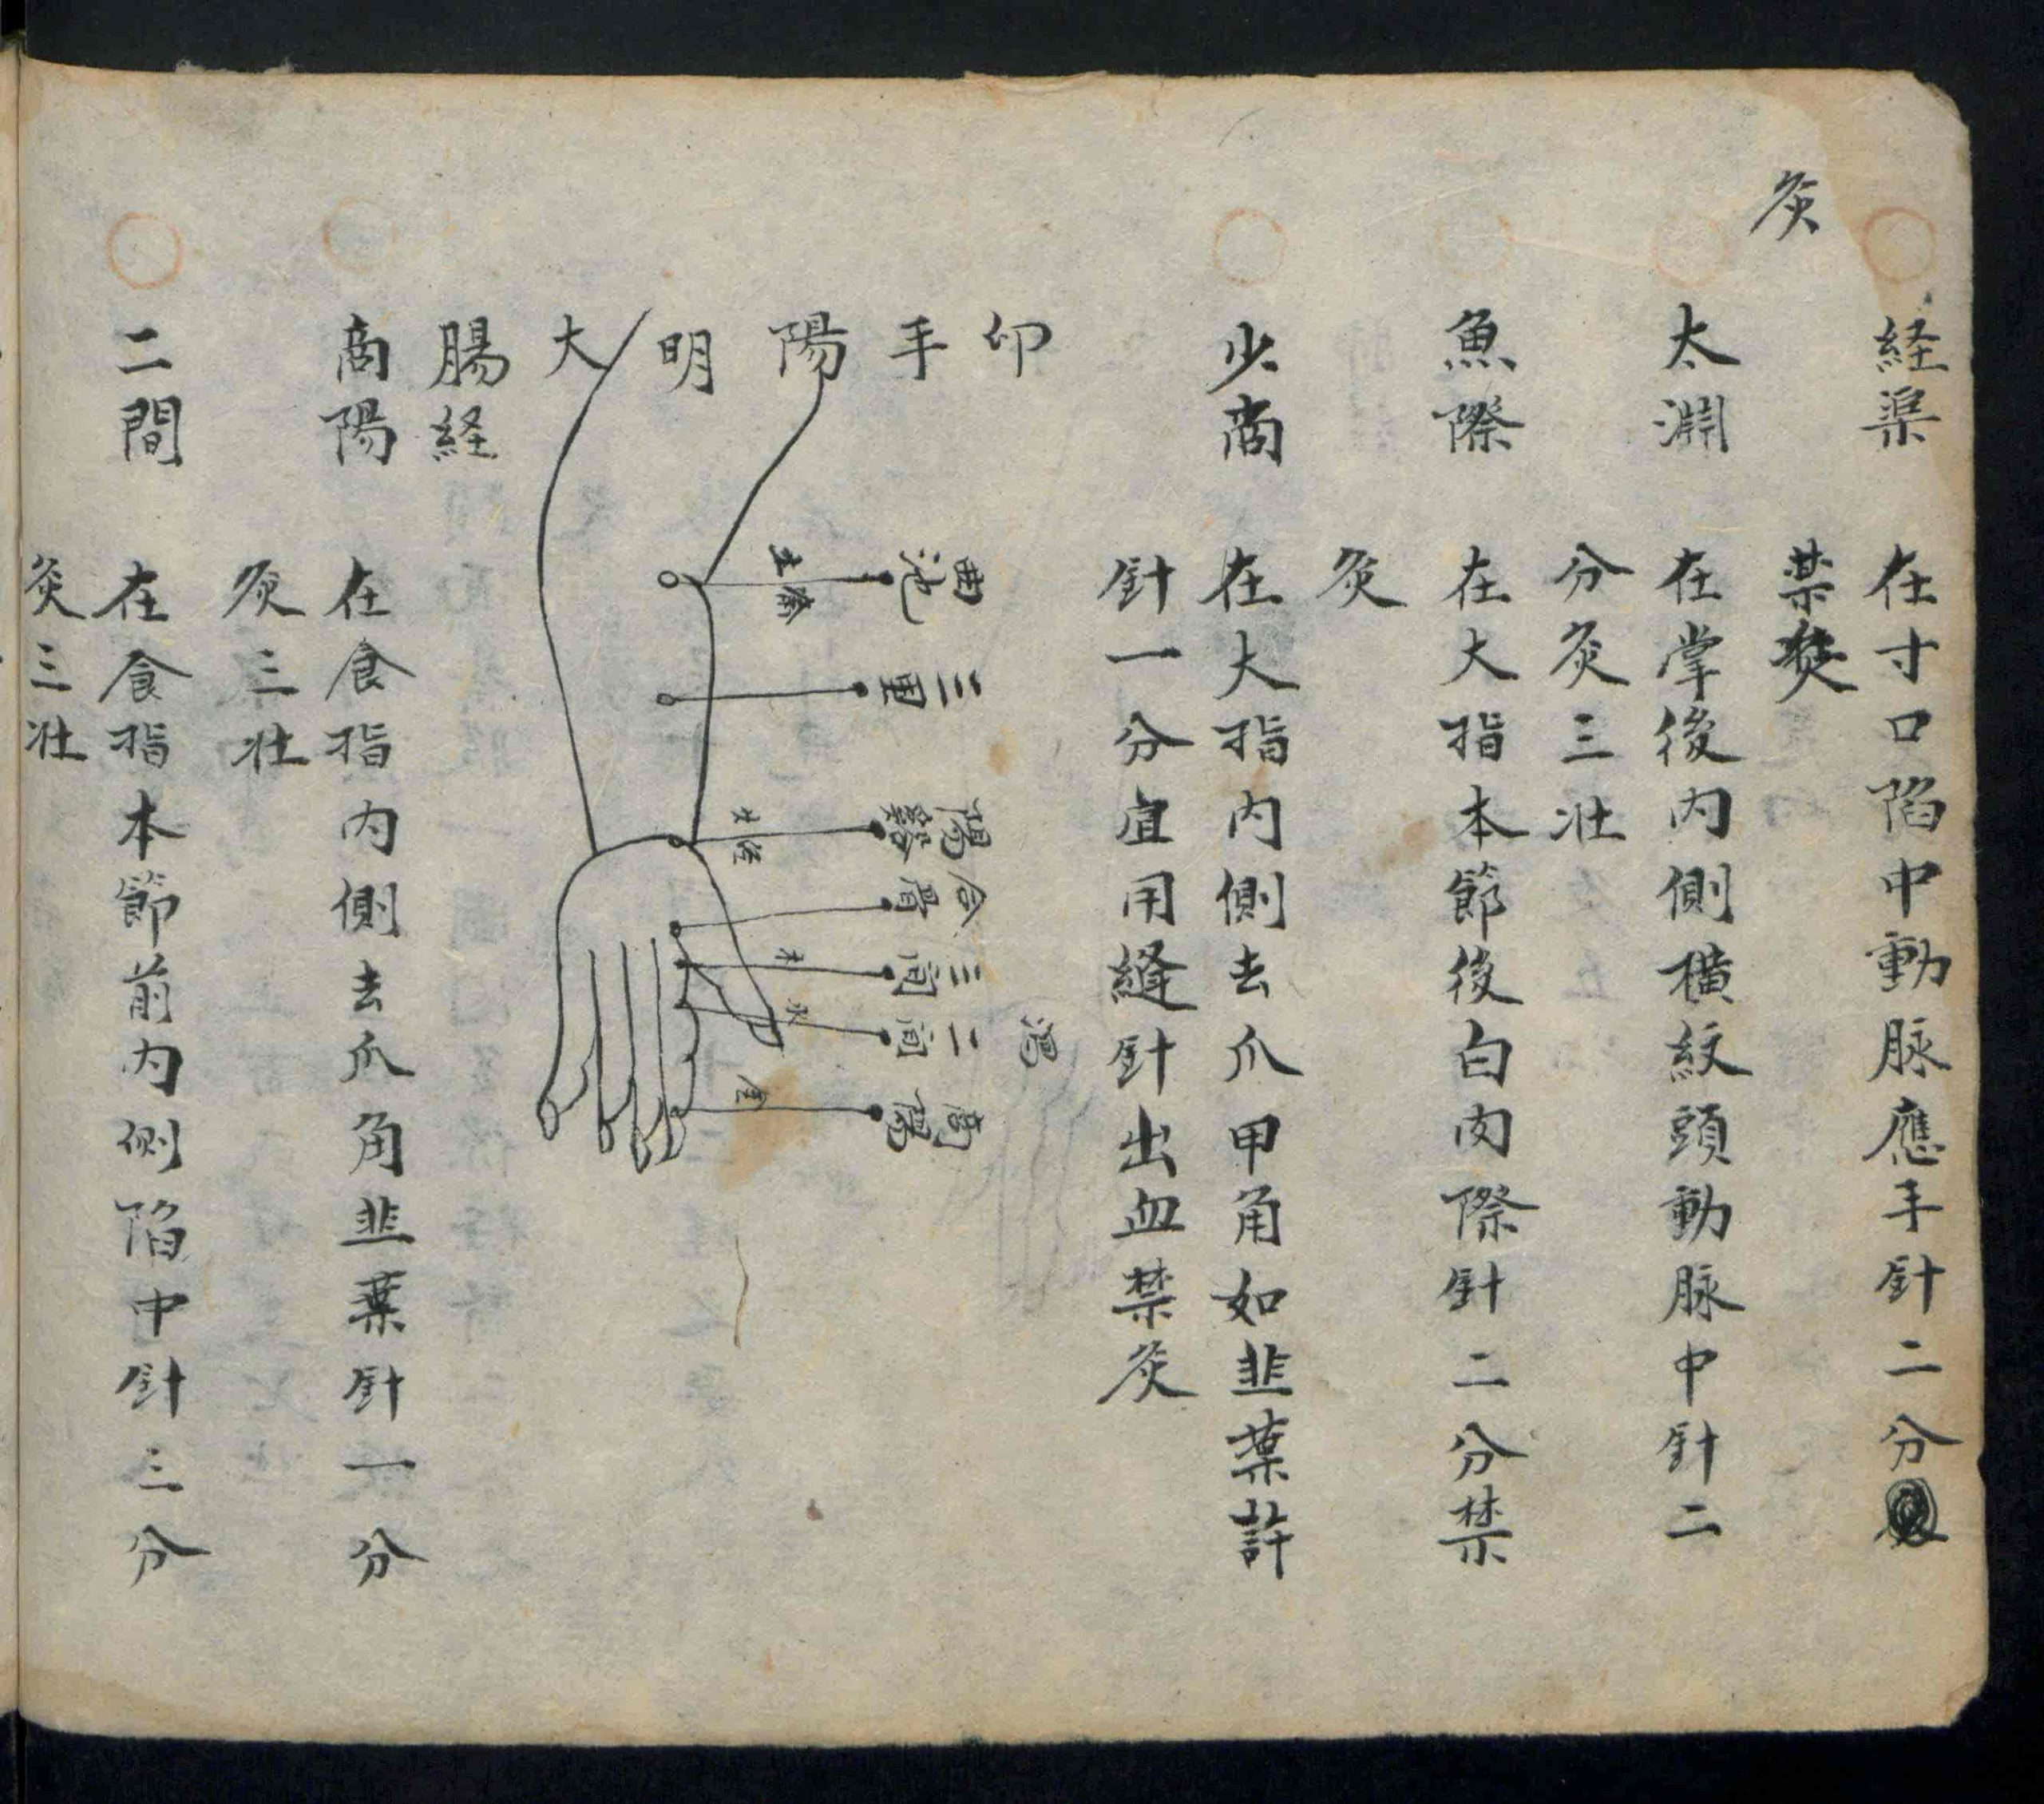 経渠 在寸口陷中動脉應手針二分
禁灸
灸
太淵 在掌後内側横紋頭動脉中針二
分灸三壮
魚際 在大指本節後白肉際針二分禁
灸
少商 在大指内側去爪甲角如韮葉許
針一分宜用縫針出血禁灸
仰手陽明大
腸経
曲池
土
三里
陽谿
火
経
合骨
三间
木
二间
水
商陽
金
商陽 在食指内側去爪角韮葉針一分
灸三壮
二間 在食指本節前内側陷中針三分
灸三壮